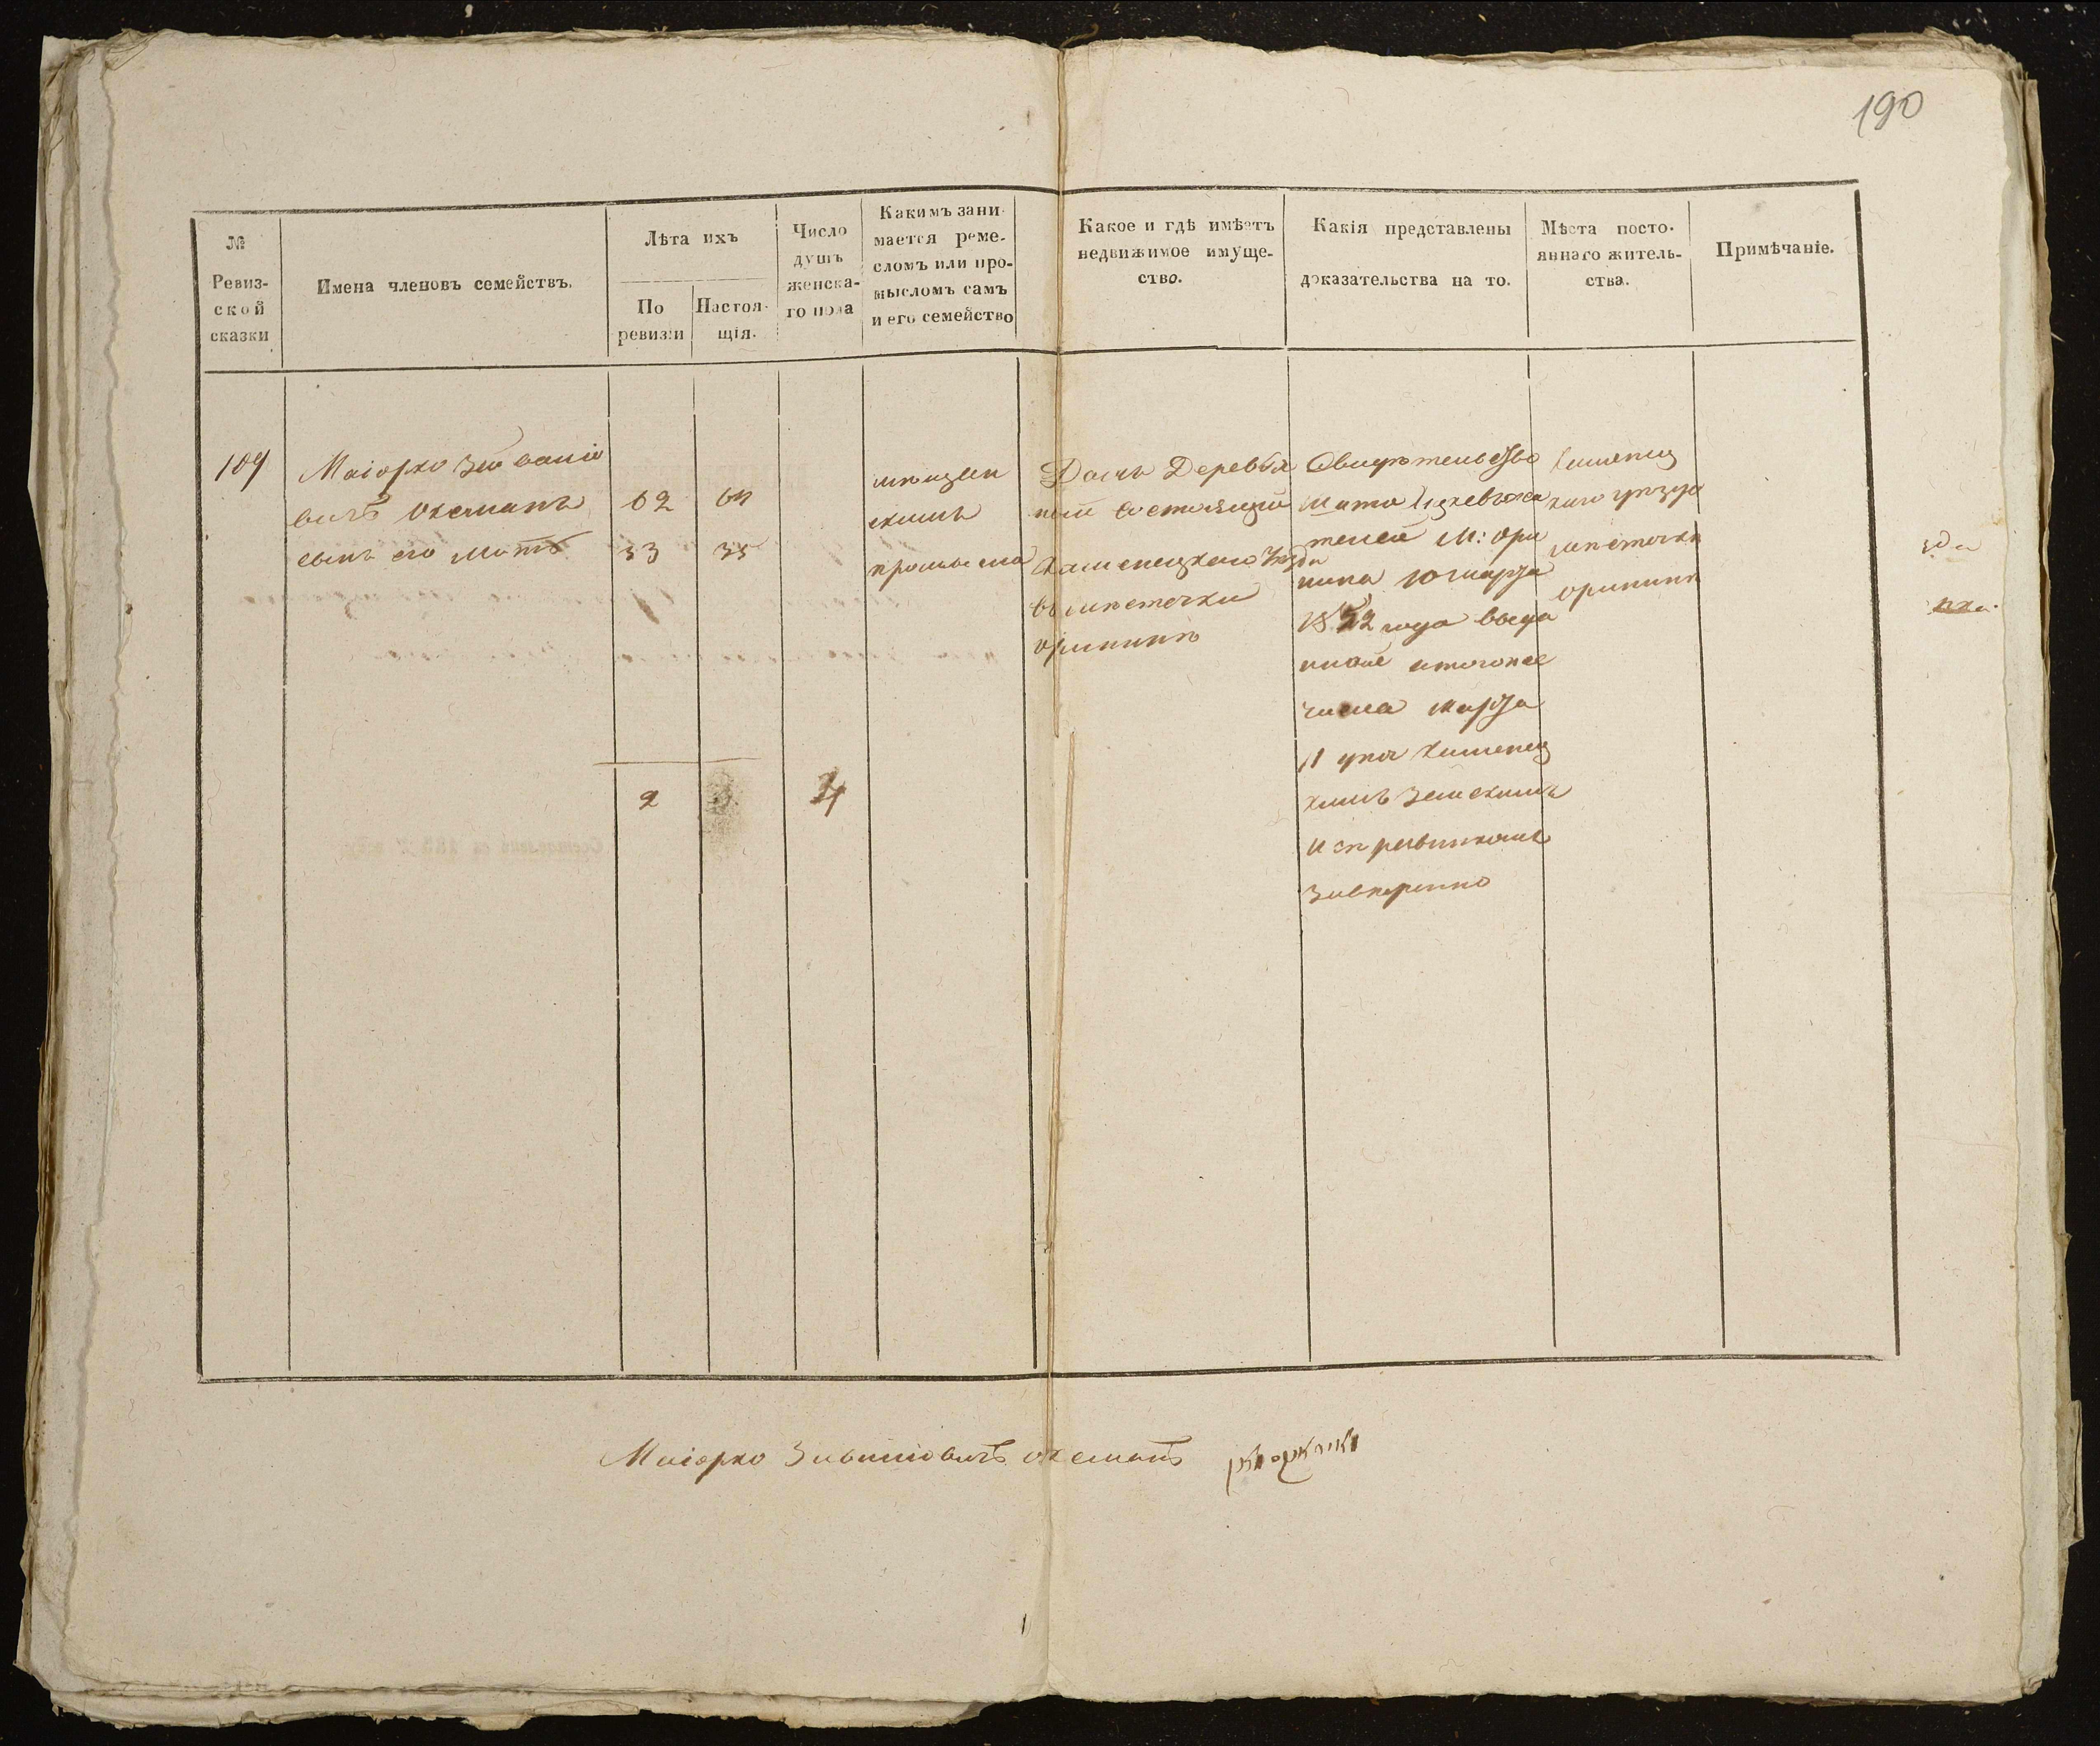 190
№
Ревиз-
ской
сказки
Имена членовъ семействъ.
Лѣта ихъ
По
ревизіи
Настоя-
щія.
Число
душъ
женска-
го пола
Какимъ зани-
мается реме-
сломъ или про-
мысломъ самъ
и его семейство
Какое и гдѣ имѣетъ
недвижимое имуще-
ство.
Какія представлены
доказательства на то.
Мѣста посто-
яннаго житель-
ства.
Примѣчаніе.
Маіорко
вичъ Оксманъ 62
сынъ его Мотъ 33 35
2
мѣщан
скимъ
промысла
Домъ Деревян
ный состоящій
Каменецкаго Уѣзда
въ мѣстечки
Орининѣ
Свидѣтельство
телей М: Ори
нина 10 марта
1852 года выда
нное и того же
числа марта
11 дня Каменец
кимъ Земскимъ
Исправникомъ
Завѣрено
Каменец
каго уѣзда
мѣстечкѣ
Орининѣ
Маіорко оксманъ